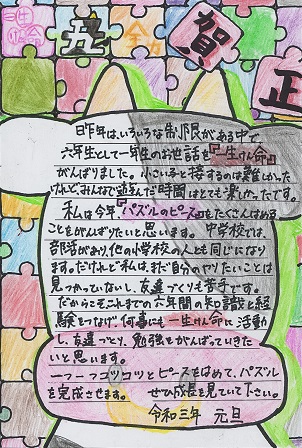 賀正
丑
昨年は、いろいろな制限がある中で
六年生として一年生のお世話を『一生けん命』
がんばりました。小さい子と接するのは難しかった
けれど、みんなで遊んだ時間はとても楽しかったです。
私は今年、『パズルのピース』をたくさんはめる
ことをがんばりたいと思います。中学校では、
部活があり、他の小学校の人とも同じになり
ます。だけれど私は、まだ自分のやりたいことは
見つかっていないし、友達づくりも苦手です。
だからこそ、これまでの六年間の知識と経
験をつなげ、何事にも一生けん命に活動
し、友達づくり、勉強をがんばっていきた
いと思います。
一つ一つコツコツとピースをはめて、パズル
を完成させます。 ぜひ成長を見ていて下さい。
令和三年 元旦